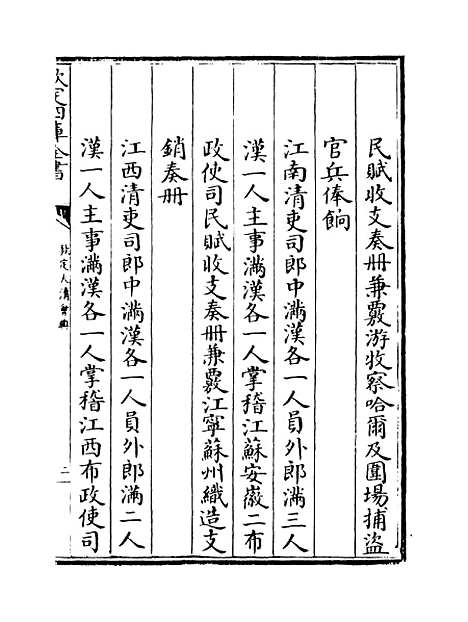 民賦收支奏册兼覈游牧察哈爾及圍場捕盜
官兵俸餉
江南清吏司郎中滿漢各一人員外郎滿三人
漢一人主事滿漢各一人掌稽江蘇安徽二布
政使司民賦收支奏册兼覈江寧蘇州織造支
銷奏册
江西清吏司郎中滿漢各一人員外郎滿二人
漢一人主事滿漢各一人掌稽江西布政使司
欽定四庫全書
欽定大清會典